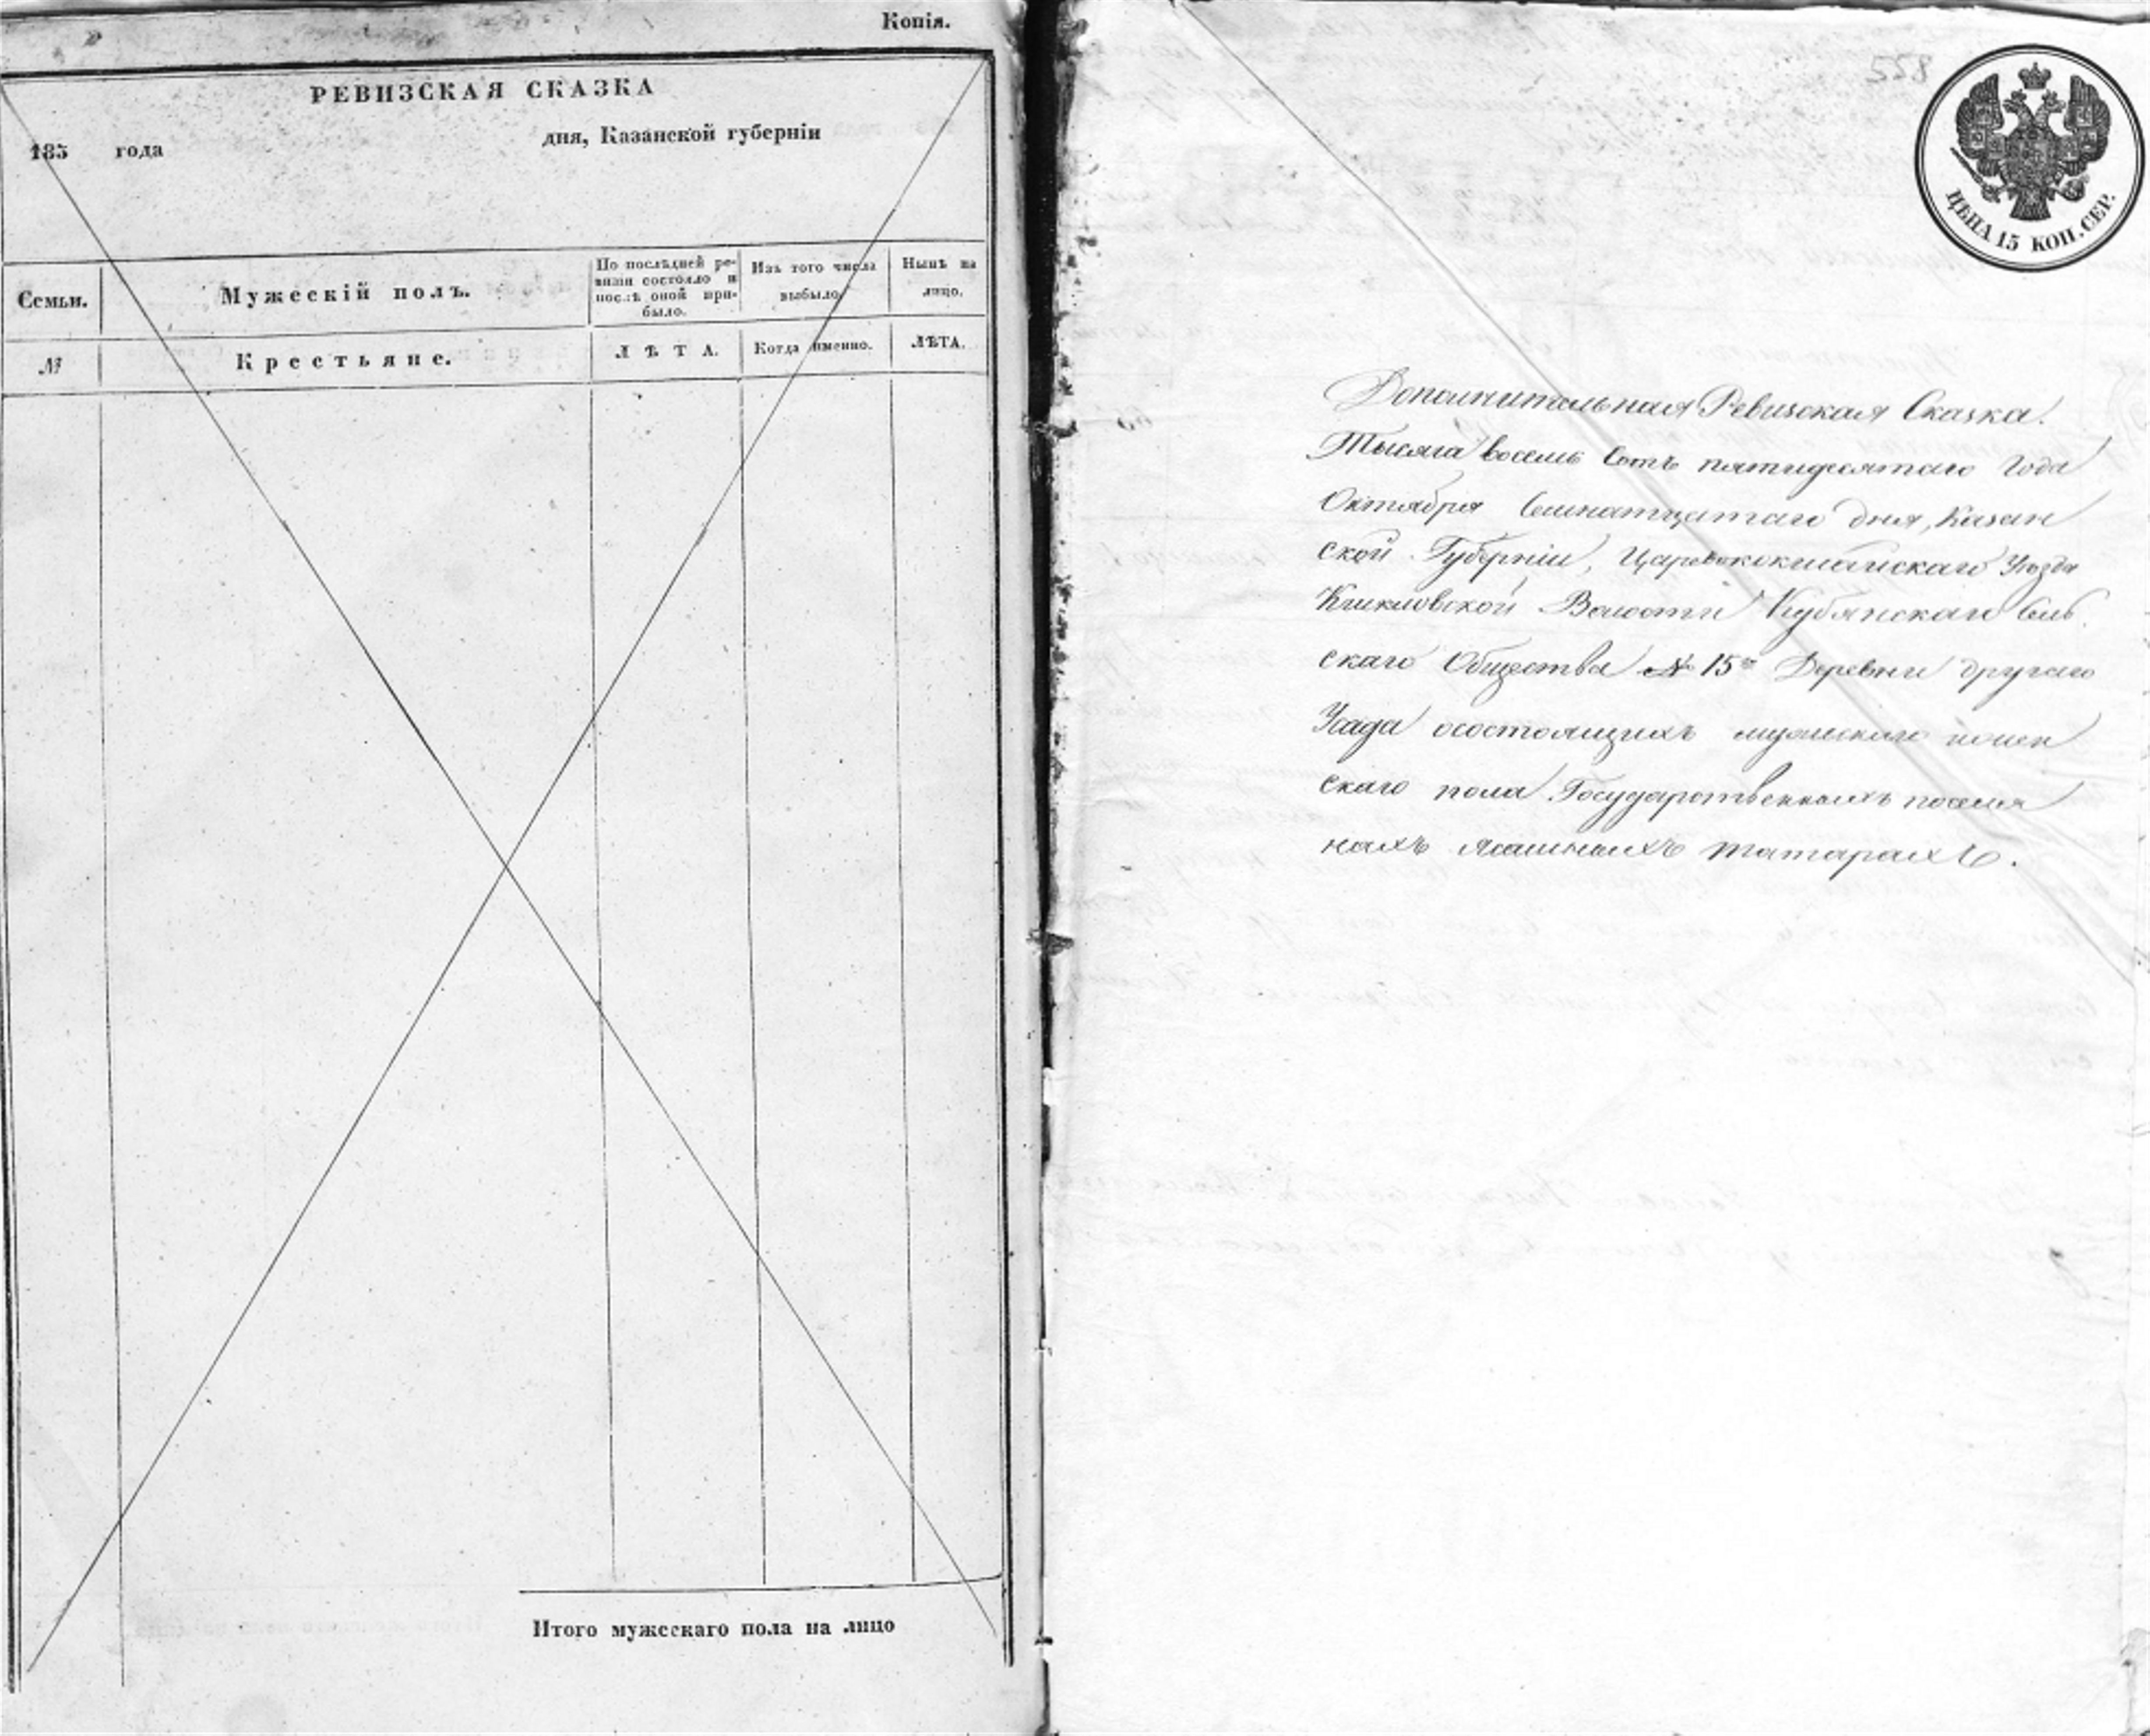 Копія.
РЕВИЗСКАЯ СКАЗКА
185 года дня, Казанской губерніи
Семьи.
Мужескій полъ.
По послѣдней ре-
визіи состояло и
послѣ оной при-
было.
Изъ того числа
выбыло.
Нынѣ на
лицо.
№
Крестьяне.
ЛѢТА.
Когда именно.
ЛѢТА.
Итого мужескаго пола на лицо
558
ЦѢНА 15 КОП. СЕР.
Дополнительная Ревизская Сказка.
Тысяча восемь сотъ пятидесятаго Года
Октября семнатцатаго дня, Казан
ской Губерніи, Царевококшайскаго Уѣзда
Кшкловской Волости Кубянскаго Сель
скаго Общества № 15й Деревни другаго
Усада осостоящихъ мужеска и жен
скаго пола Государственныхъ поселя
нахъ ясашныхъ татарахъ.